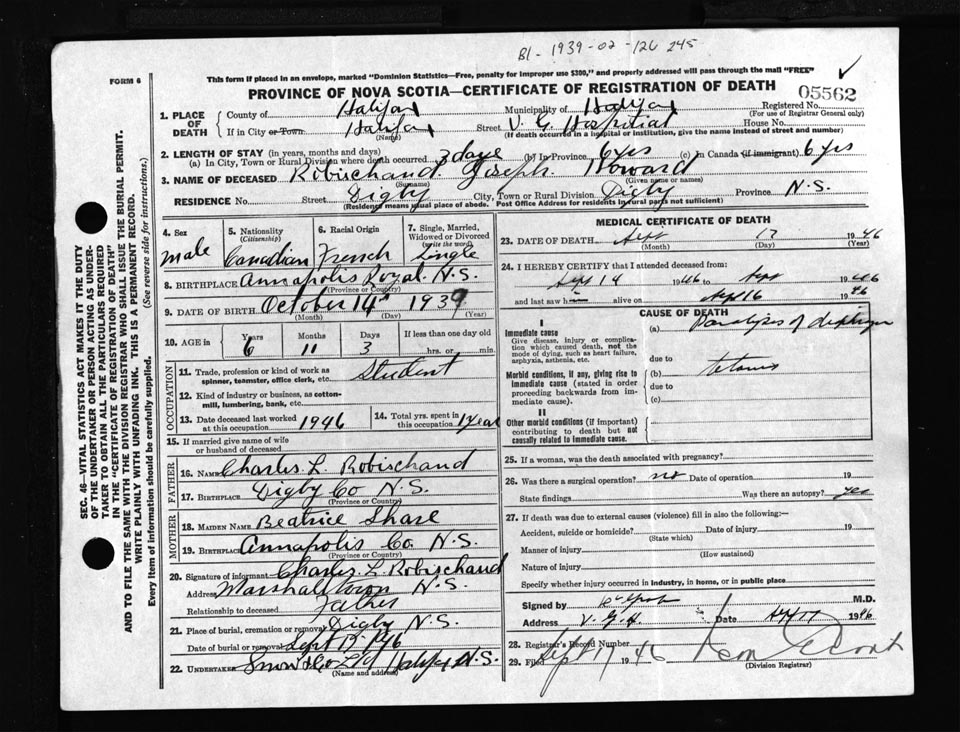 B1- 1939-02-126245
FORM 6
This form if placed in an envelope, marked "Dominion Statistics—Free, penalty for improper use $300," and properly addressed will pass through the mail "FREE"
PROVINCE OF NOVA SCOTIA—CERTIFICATE OF REGISTRATION OF DEATH
05562
1. PLACE OF DEATH
County of Halifax Municipality of Halifax Registered No.
(For use of Registrar General only)
If in City or Town Halifax Street V. G. Hospital House No.
(Name) (If death occurred in a hospital or institution, give the name instead of street and number)
2. LENGTH OF STAY (in years, months and days)
(a) In City, Town or Rural Division where death occurred 3 days (b) In Province 6 yrs (c) In Canada (if immigrant) 6 yrs
3. NAME OF DECEASED Robischand Joseph Howard
(Surname) (Given name or names)
RESIDENCE No. Street Digby City, Town or Rural Division Digby Province N.S.
(Residence means usual place of abode. Post Office Address for residents in rural parts not sufficient)
4. Sex
Male
5. Nationality
(Citizenship)
Canadian
6. Racial Origin
French
7. Single, Married, Widowed or Divorced
(write the word)
Single
8. BIRTHPLACE Annapolis Royal. N.S.
(Province or Country)
9. DATE OF BIRTH October 14th 1939
(Month) (Day) (Year)
10. AGE in
Years Months Days If less than one day old
6 11 3 hrs. or min.
OCCUPATION
11. Trade, profession or kind of work as spinner, teamster, office clerk, etc. Student
12. Kind of industry or business, as cotton-mill, lumbering, bank, etc.
13. Date deceased last worked at this occupation 1946
14. Total yrs. spent in this occupation 1 year
15. If married give name of wife or husband of deceased
FATHER
16. NAME Charles L. Robischand
17. BIRTHPLACE Digby Co N.S.
(Province or Country)
MOTHER
18. MAIDEN NAME Beatrice
19. BIRTHPLACE Annapolis Co. N.S.
(Province or Country)
20. Signature of informant Charles L. Robischand
Address Marshalltown N.S.
Relationship to deceased Father
21. Place of burial, cremation or removal Digby N.S.
Date of burial or removal Sept 17 1946
22. UNDERTAKER Snow & Co Ltd Halifax N.S.
MEDICAL CERTIFICATE OF DEATH
23. DATE OF DEATH Sept 17 1946
(Month) (Day) (Year)
24. I HEREBY CERTIFY that I attended deceased from:
Sept 14 1946 to Sept 1946
and last saw h alive on Sept 16 1946
CAUSE OF DEATH
I
Immediate cause
Give disease, injury or complication which caused death, not the mode of dying, such as heart failure, asphyxia, asthenia, etc.
(a) Paralysis of diaphragm
due to
Morbid conditions, if any, giving rise to immediate cause (stated in order proceeding backwards from immediate cause).
(b) tetanus
due to
(c)
II
Other morbid conditions (if important) contributing to death but not causally related to immediate cause.
25. If a woman, was the death associated with pregnancy?
26. Was there a surgical operation? no Date of operation 19
State findings Was there an autopsy? yes
27. If death was due to external causes (violence) fill in also the following:—
Accident, suicide or homicide? Date of injury 19
(State which)
Manner of injury
(How sustained)
Nature of injury
Specify whether injury occurred in industry, in home, or in public place
Signed by M.D.
Address V. G. H. Date Sept 17 1946
28. Registrar's Record Number
29. Filed Sept 17 1946
(Division Registrar)
SEC. 46—VITAL STATISTICS ACT MAKES IT THE DUTY
OF THE UNDERTAKER OR PERSON ACTING AS UNDER-
TAKER TO OBTAIN ALL THE PARTICULARS REQUIRED
IN THE "CERTIFICATE OF REGISTRATION OF DEATH"
AND TO FILE THE SAME WITH THE DIVISION REGISTRAR WHO SHALL ISSUE THE BURIAL PERMIT.
WRITE PLAINLY WITH UNFADING INK. THIS IS A PERMANENT RECORD.
Every item of information should be carefully supplied. (See reverse side for instructions.)